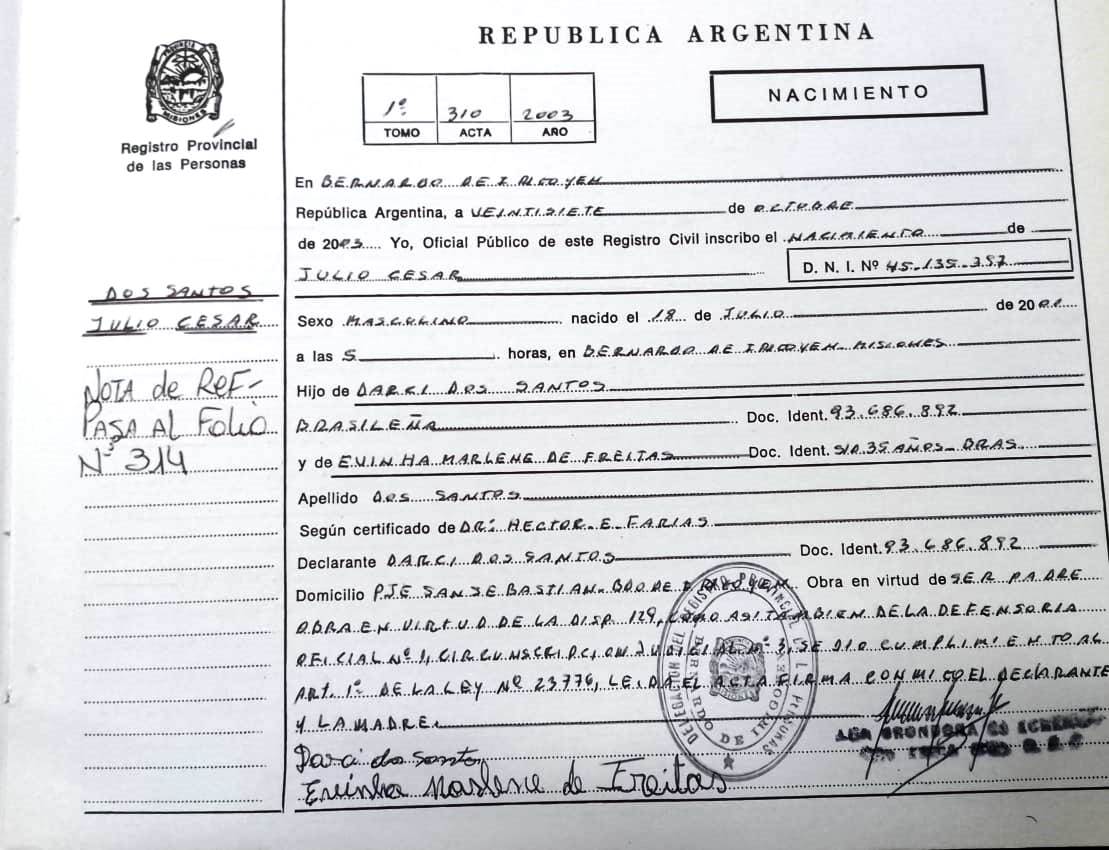 REPUBLICA ARGENTINA
PROVINCIA DE
MISIONES
Registro Provincial
de las Personas
1º 310 2003
TOMO ACTA AÑO
NACIMIENTO
En BERNARDO DE IRIGOYEN
República Argentina, a VEINTISIETE de OCTUBRE
de 2003 Yo, Oficial Público de este Registro Civil inscribo el NACIMIENTO de
JULIO CESAR D. N. I. Nº 45.135.357
DOS SANTOS
JULIO CESAR
Sexo MASCULINO nacido el 18 de JULIO de 2001
a las 5 horas, en BERNARDO DE IRIGOYEN. MISIONES
NOTA de REF-
PASA AL FOLIO
Nº 314
Hijo de DARCI DOS SANTOS
BRASILEÑA Doc. Ident. 93.686.892
y de EUINHA MARLENE DE FREITAS Doc. Ident. S/D 35 AÑOS- BRAS.
Apellido DOS SANTOS
Según certificado de DR: HECTOR. E. FARIAS
Declarante DARCI DOS SANTOS Doc. Ident. 93.686.892
Domicilio PJE SAN SEBASTIAN. BDO DE IRIGOYEN. Obra en virtud de SER PADRE
OBRA EN VIRTUD DE LA DISP 129, COMO ASI TAMBIEN DE LA DEFENSORIA
OFICIAL Nº 1, CIRCUNSCRIPCION JUDICIAL Nº 3, SE DIO CUMPLIMIENTO AL
ART. 1º DE LA LEY Nº 23776, LEIDA EL ACTA FIRMA CONMIGO EL DECLARANTE
Y LA MADRE.
Darci dos Santos
Euinha Marlene de Freitas
DELEGACION DEL REGISTRO PROVINCIAL DE L. PERSONAS
BERNARDO DE IRIGOYEN